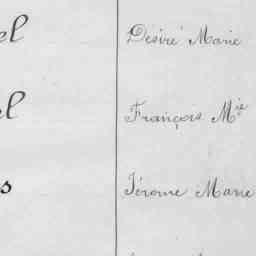 el Désiré Marie
el François Mie
s Jérome Marie